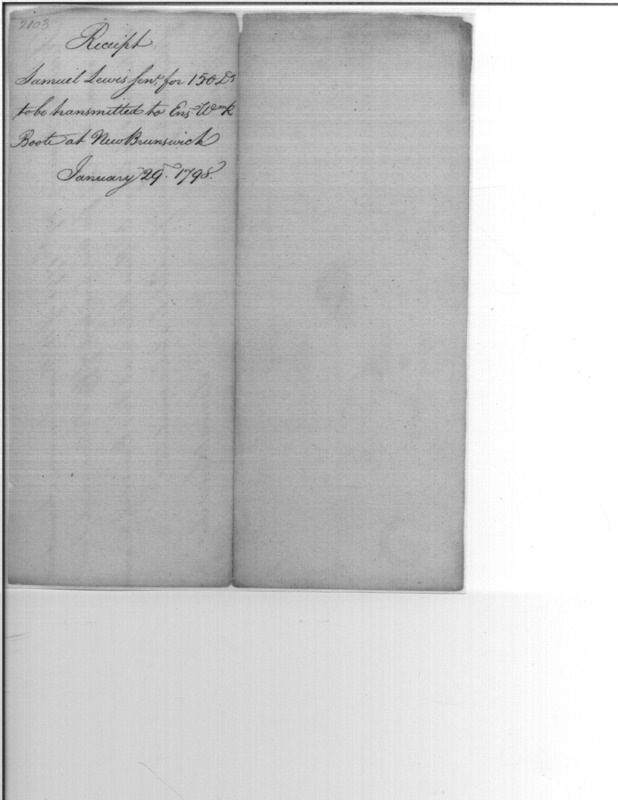 2103
Receipt
Samuel Lewis Senr. for 150 Ds
to be transmitted to Ens. Wm. R
Boote at New Brunswick
January 29. 1798.